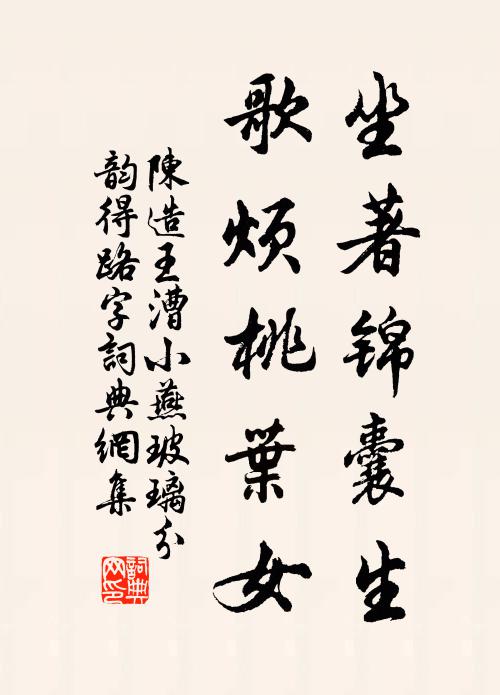 坐著锦囊生
歌烦桃葉女
陳造王漕小燕玻璃分
韵得路字詞典網集
詞典网印